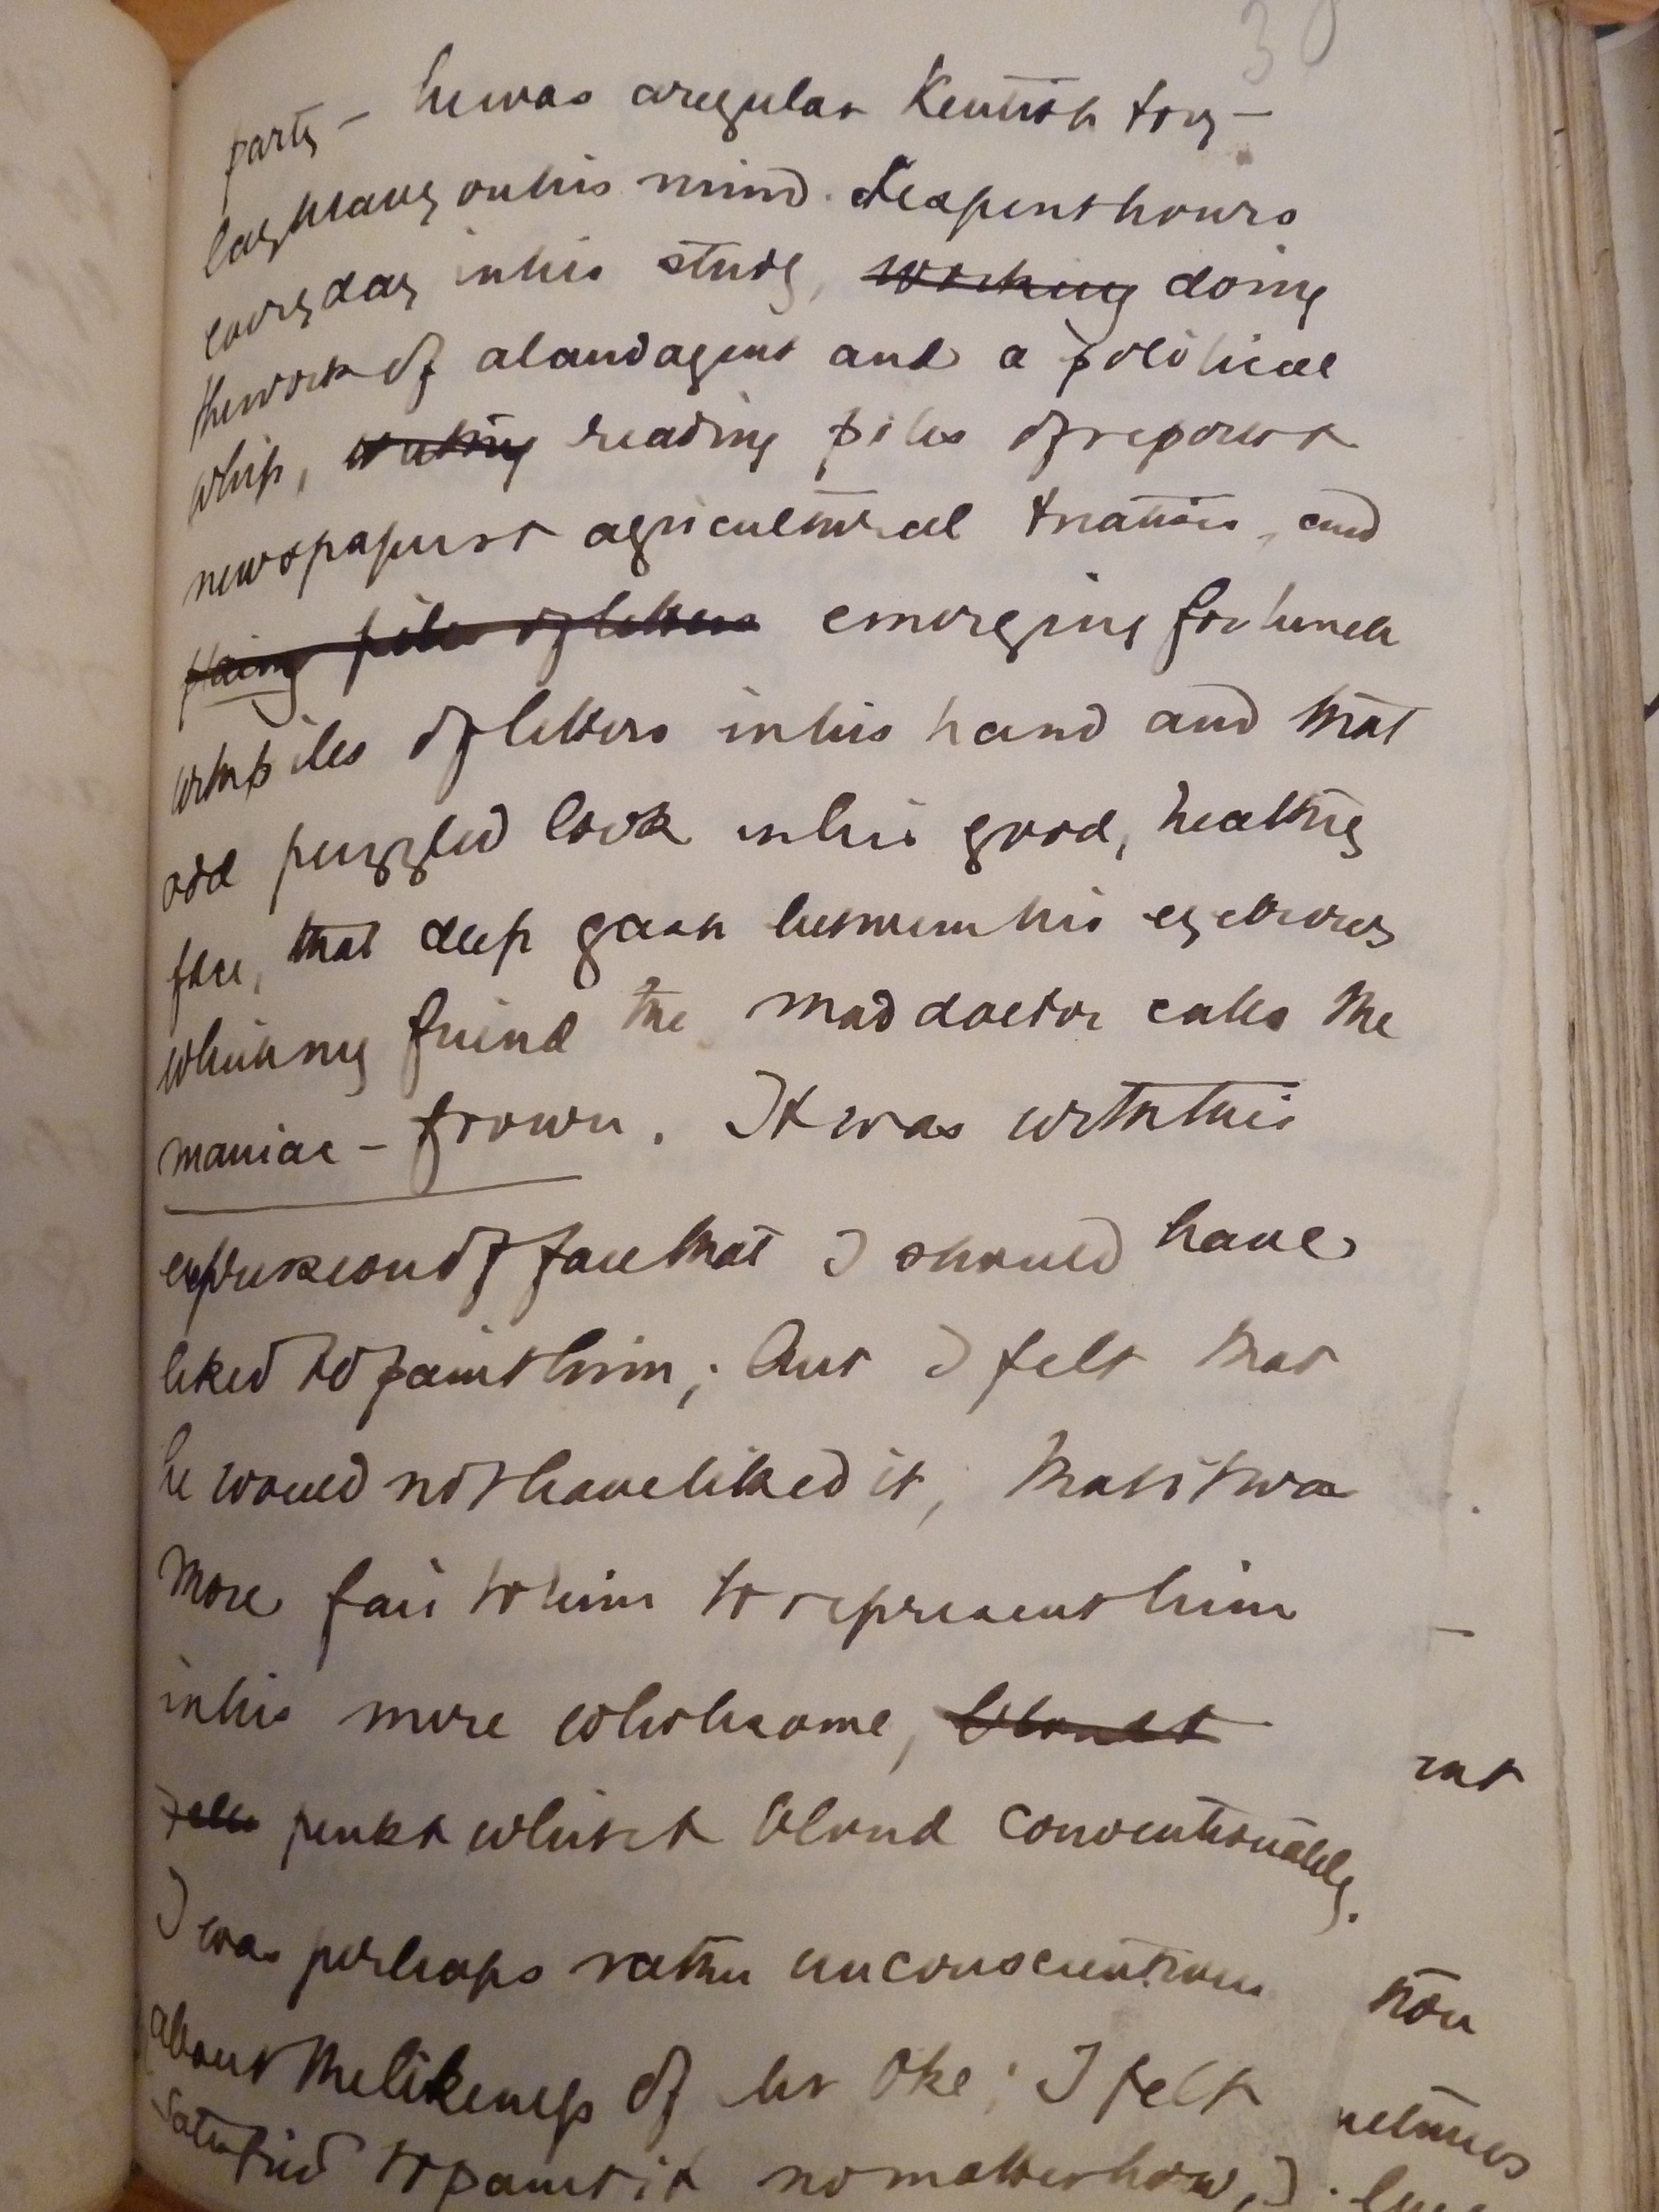 30
party – he was a regular Kentish tory –
lay heavy on his mind. He spent hours
every day in his study, working doing
the work of a land agent and a political
whip, writing reading piles of reports &
newspapers & agricultural treatises, and
piles of letters emerging for lunch
with piles of letters in his hand and that
odd puzzled look in his good, healthy
face, that deep gash between his eyebrows
which my friend the mad doctor calls the
maniac – frown. It was with this
expression of face that I should have
liked to paint him; but I felt that
he would not have liked it, that it was
more fair to him to represent him
in his more wholesome,
pink & white & blond conventionality.
I was perhaps rather unconscientious
about the likeness of Mr Oke; I felt
satisfied to paint it no matter how, I